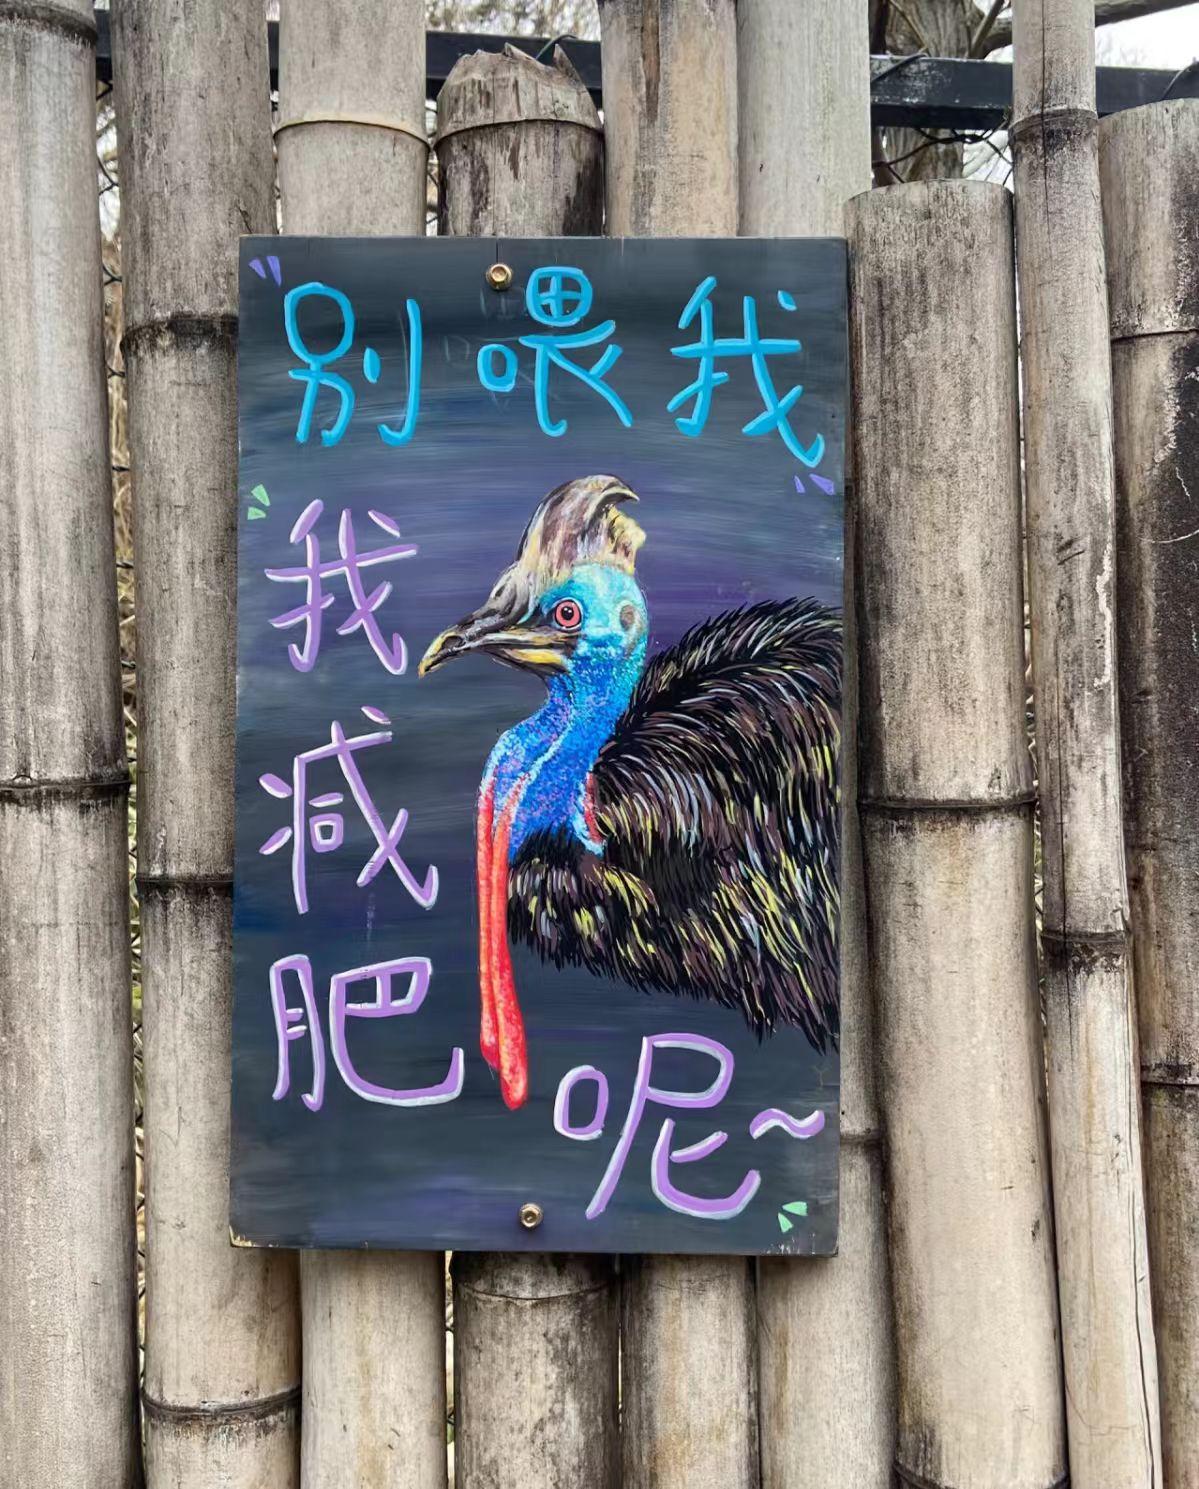 别喂我
我减肥呢~